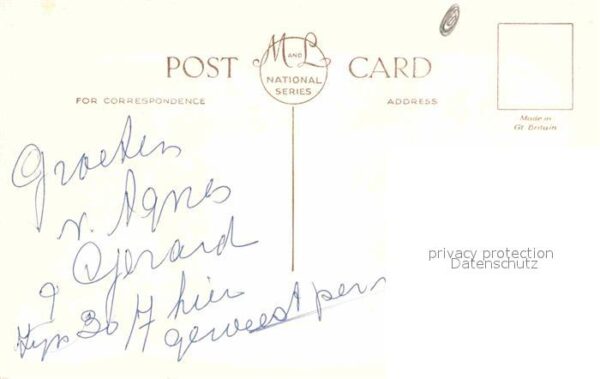 M AND L
POST CARD
NATIONAL
SERIES
FOR CORRESPONDENCE
ADDRESS
Made in
Gt. Britain
Groeten
v. Agnes
Gerard
30/7 hier
geweest per
privacy protection
Datenschutz